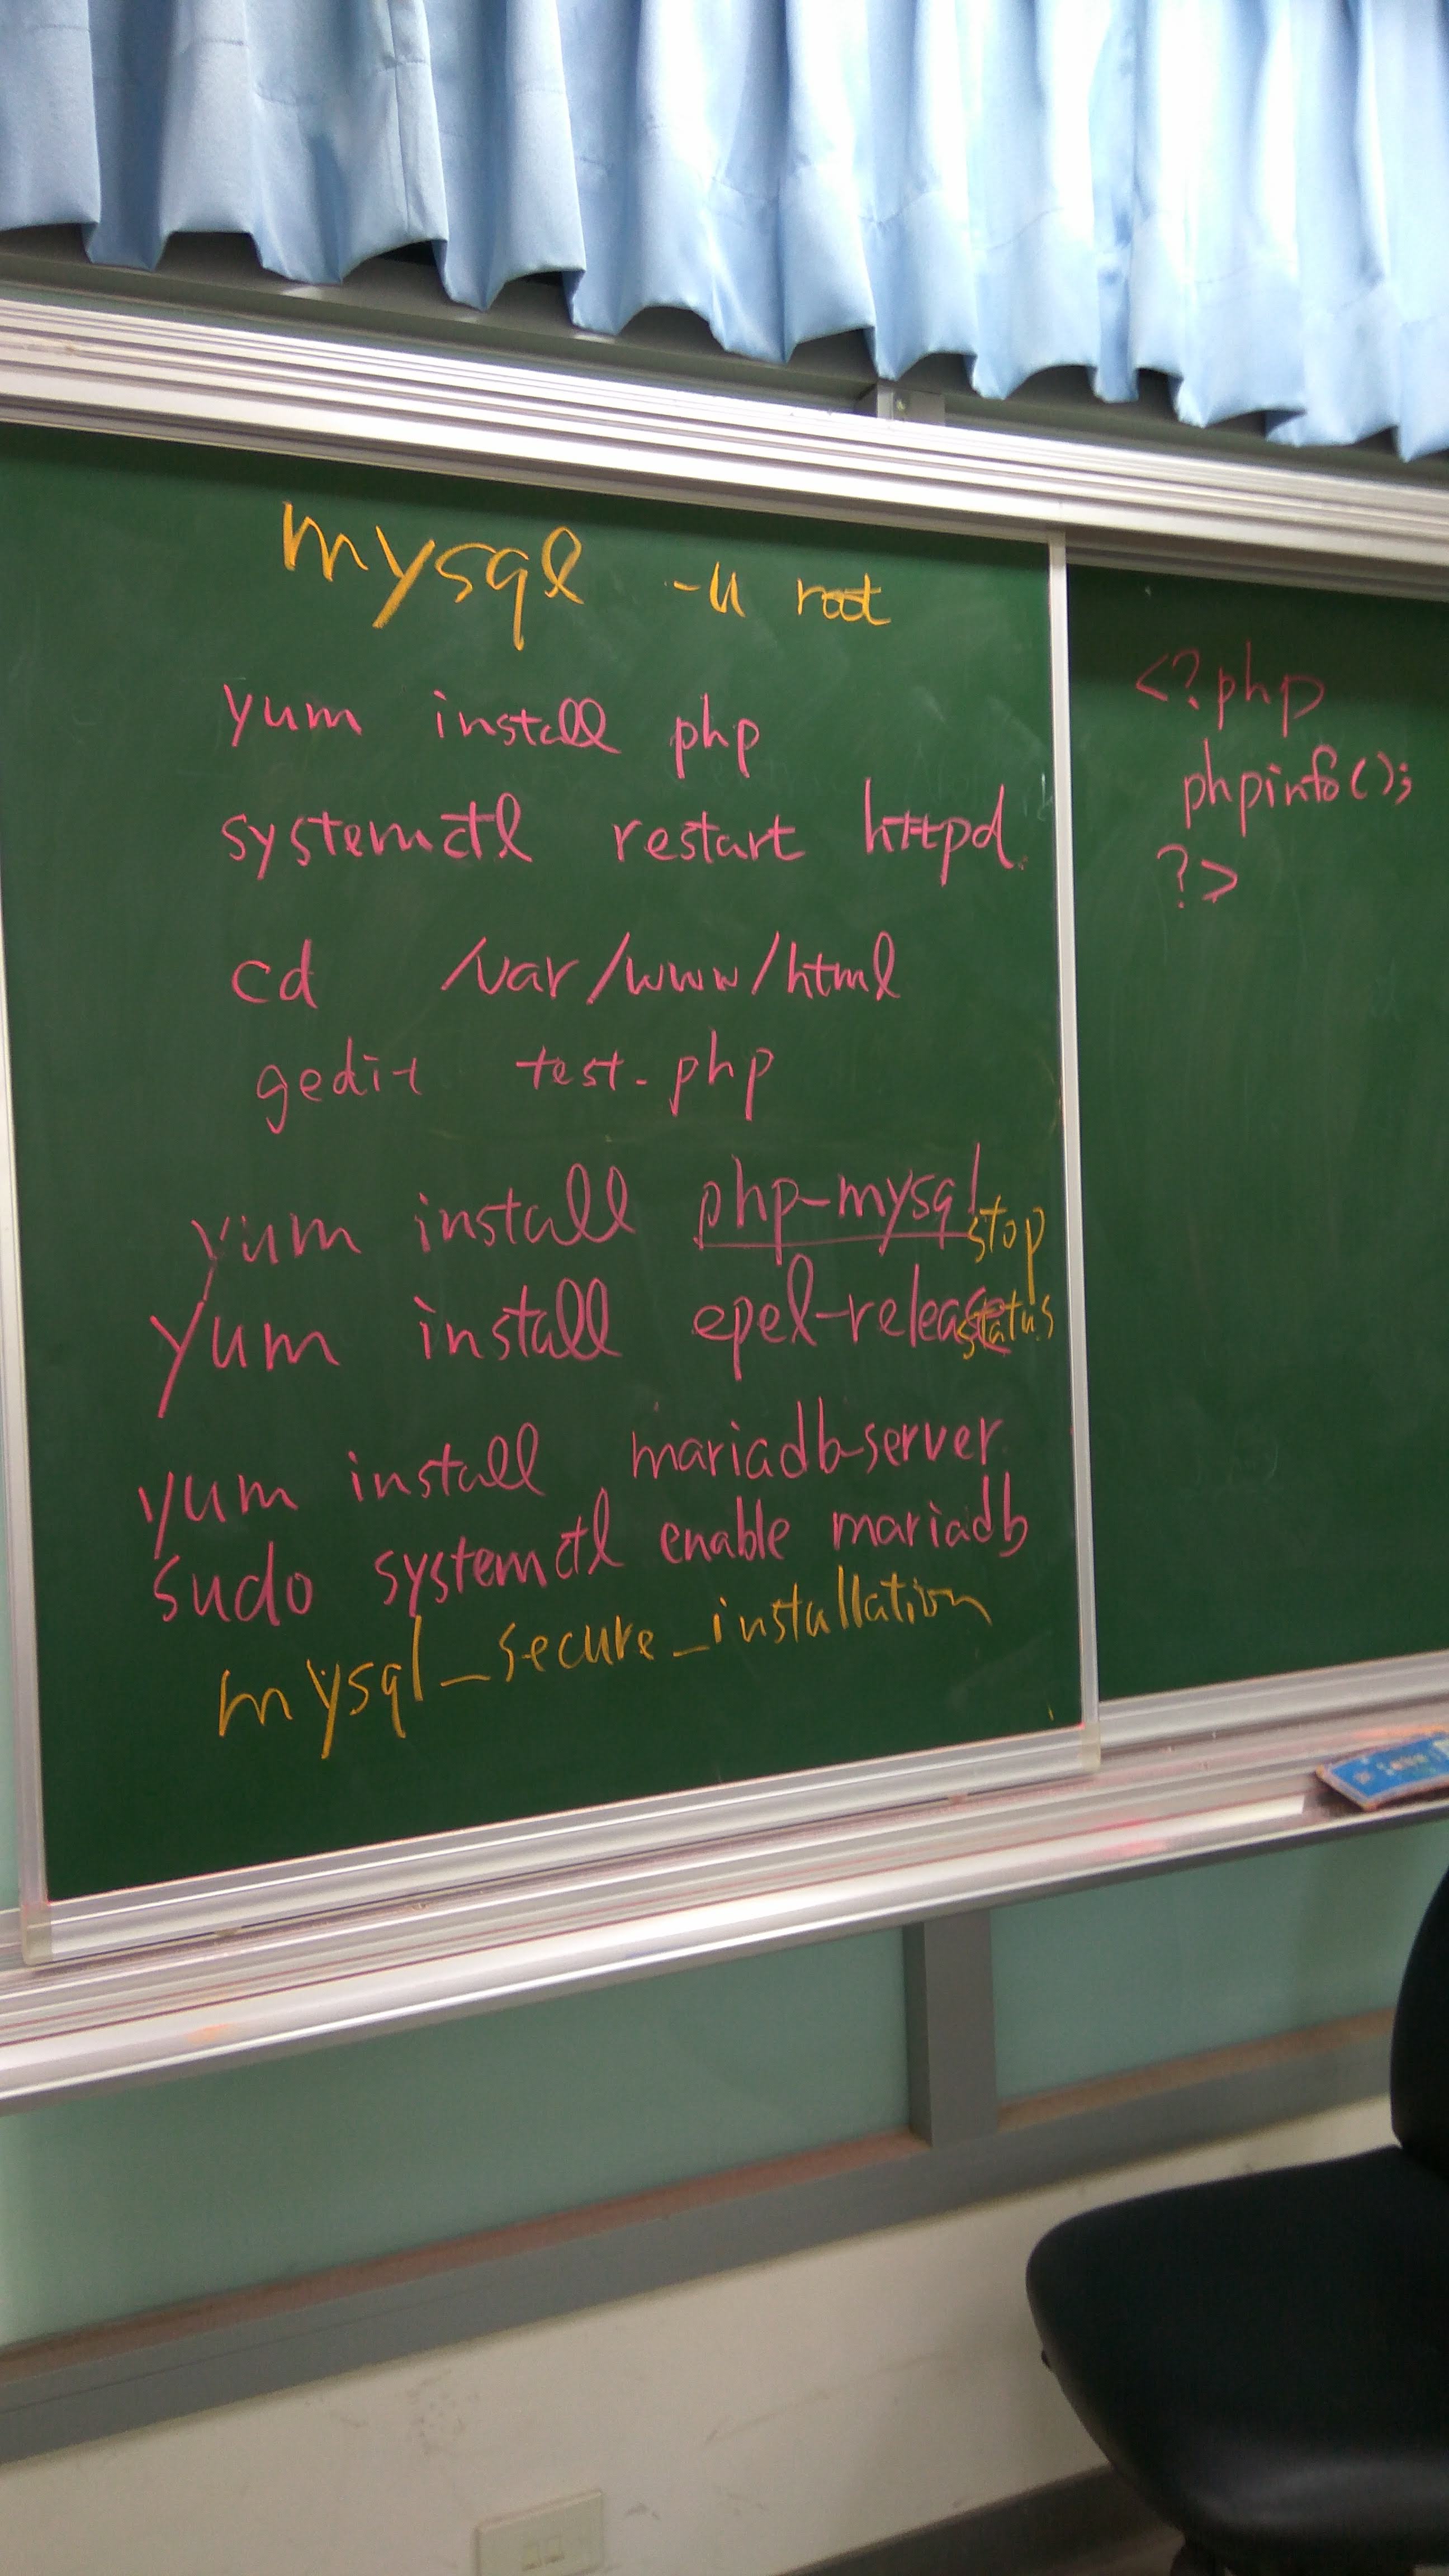 mysql -u root
yum install php
systemctl restart httpd
cd /var/www/html
gedit test.php
yum install php-mysql
stop
yum install epel-release
status
yum install mariadb-server
sudo systemctl enable mariadb
mysql_secure_installation
<?php
phpinfo();
?>